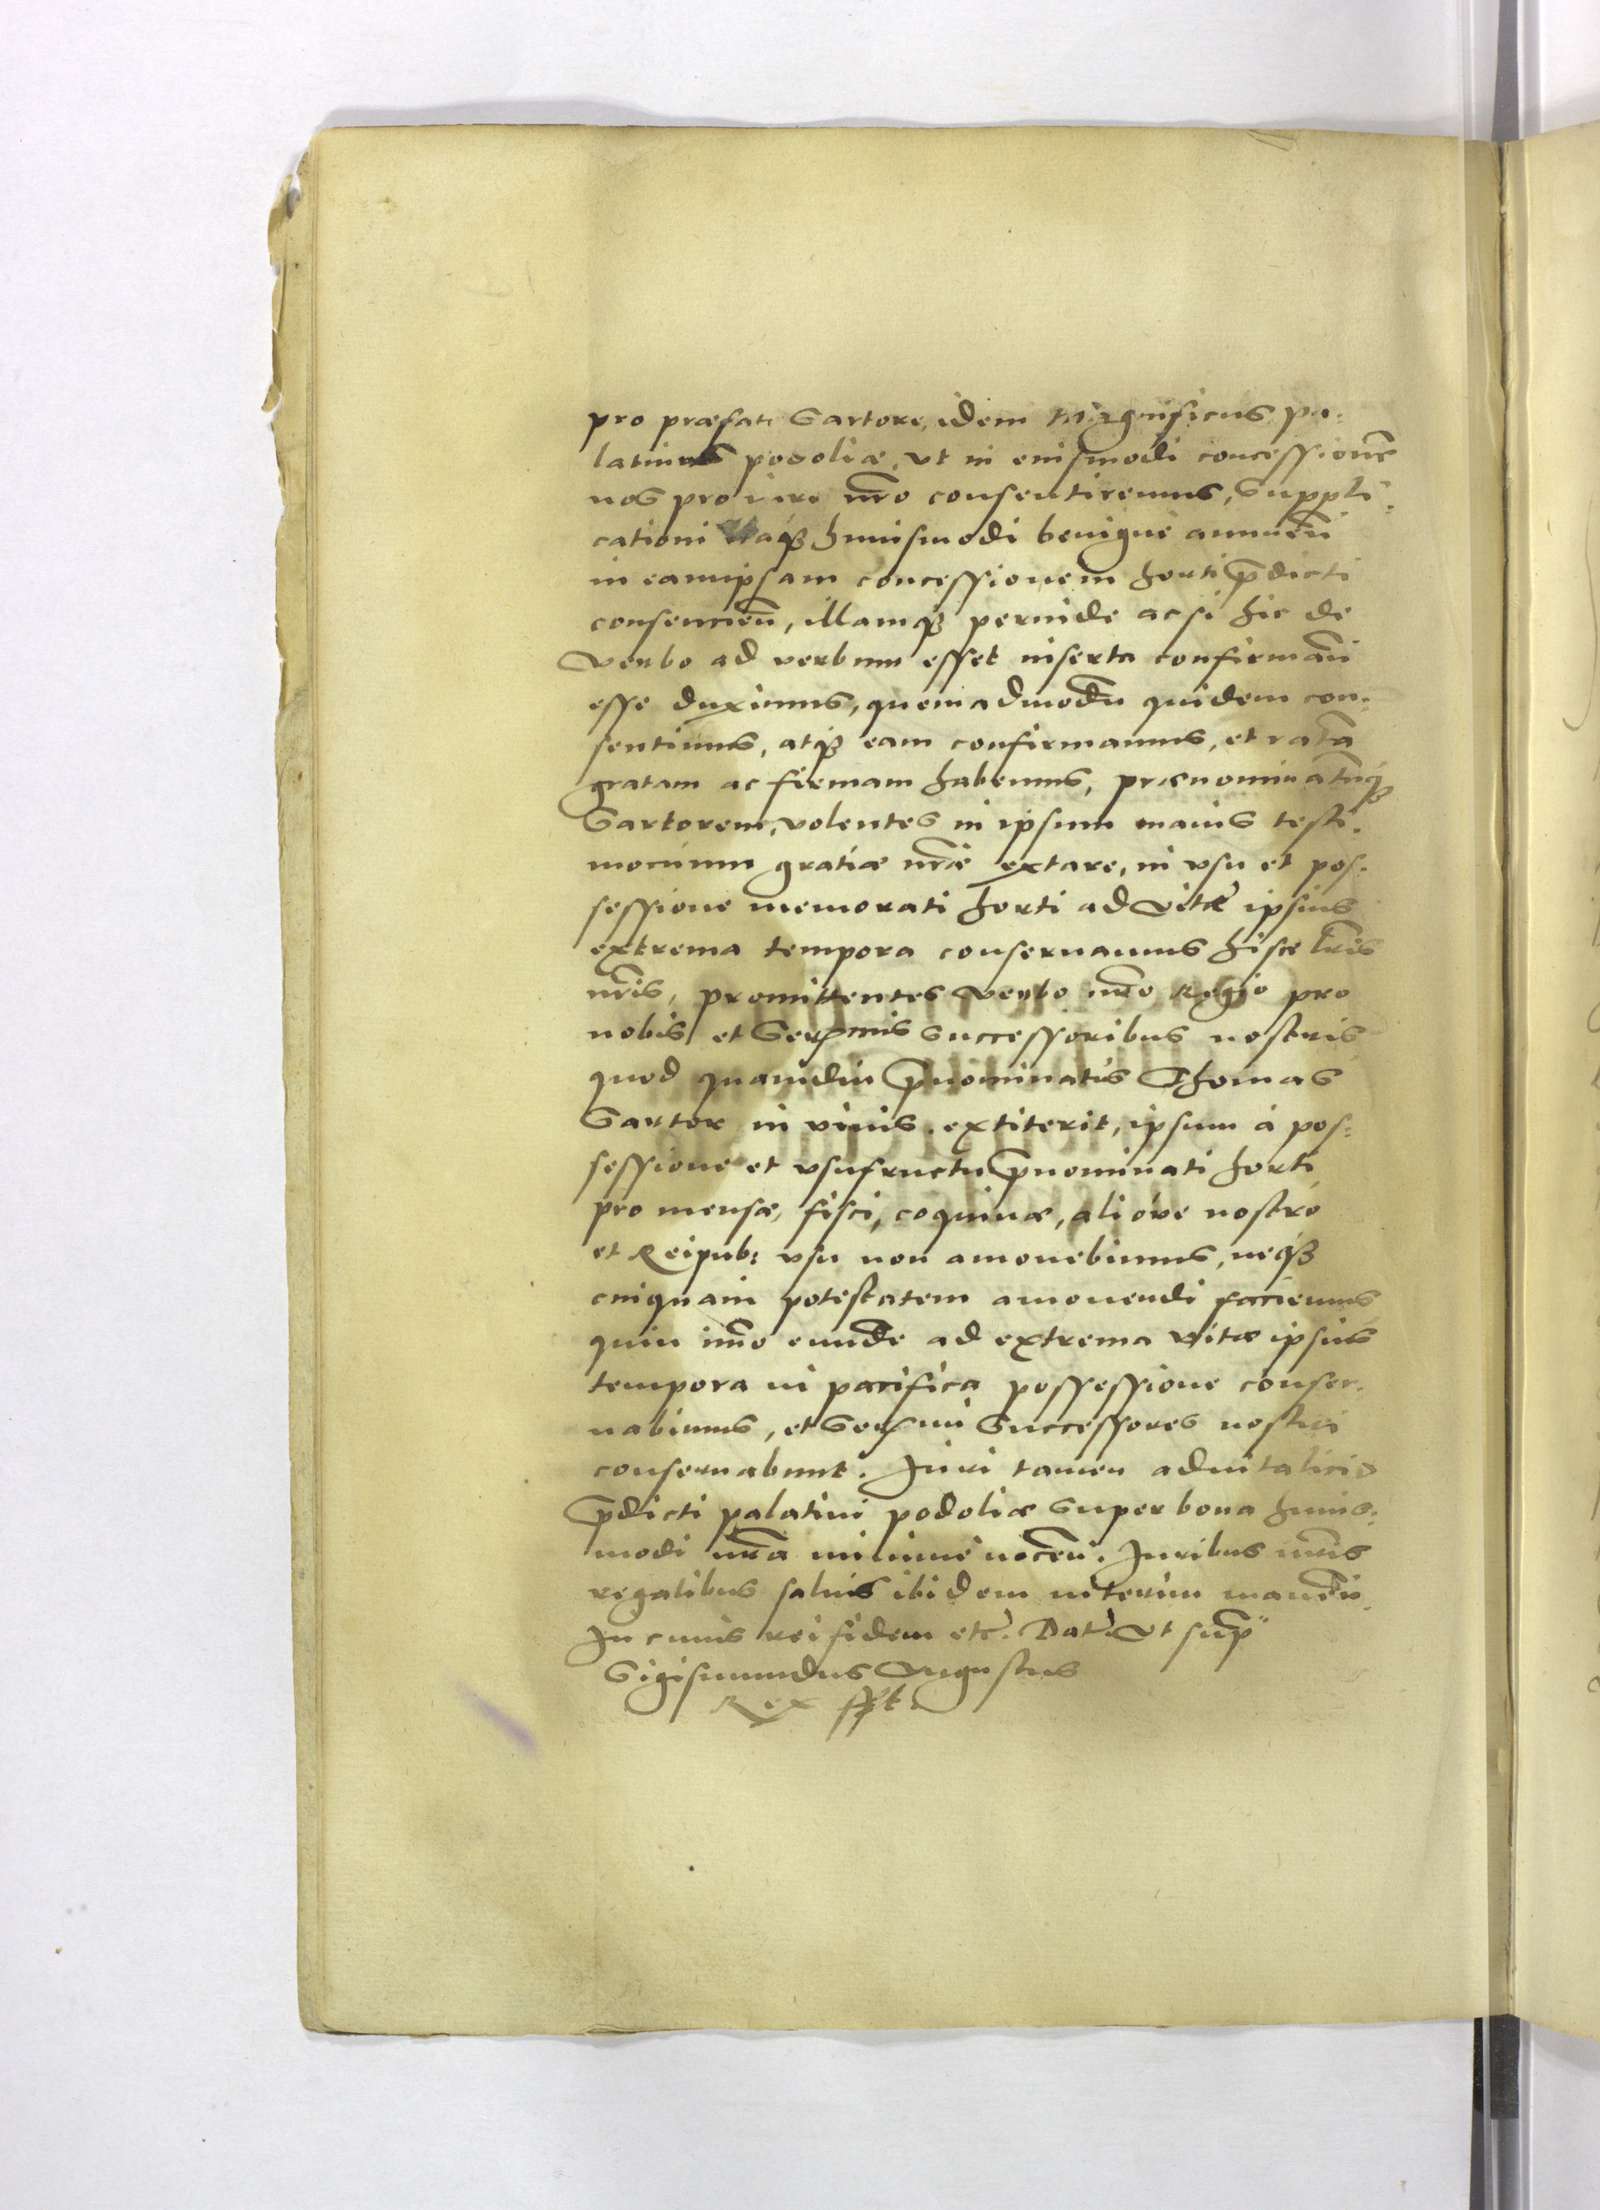 pro præfato Sartore, idem Magnificus Pa-
latinus Podoliæ, vt in eiusmodi concessionẽ
nos pro iure nr̃o consentiremus, Suppli-
cationi itaqꝫ huiusmodi benigne annueñ
in eam ipsam concessionem horti p̃dicti
consencieñ, illamqꝫ perinde ac si hic de
verbo ad verbum esset inserta confirmañ
esse duximus, quemadmodũ quidem con-
sentimus, atqꝫ eam confirmamus, et ratã
gratam ac firmam habemus, prænominatũqꝫ
Sartorem, volentes in ipsum maius testi-
monium gratiæ nr̃æ extare, in vsu et pos-
sessione memorati horti ad vitæ ipsius
extrema tempora conseruamus hisce lr̃is
nr̃is, promittentes verbo nr̃o Regio pro
nobis et Serẽmis Successoribus nostris
quod quamdiu p̃nominatus Thomas
Sartor in viuis extiterit, ipsum à pos-
sessione et vsufructu p̃nominati horti
pro mensæ, fisci, coquinæ, alioue nostro
et Reipub: vsu non amouebimus, neqꝫ
cuiquam potestatem amouendi faciemus
quin im̃o eundẽ ad extrema vitæ ipsius
tempora in pacifica possessione conser-
uabimus, et Serẽmi Successores nostri
conseruabunt. Juri tamen aduitalicio
p̃dicti palatini podoliæ super bona huius-
modi nr̃a minimè noceñ. Juribus nr̃is
regalibus saluis ibidem interim maneñ.
In cuius rei fidem etc̃. Dat̃. vt sup̃
Sigismundus Augustus
Rex sspt.